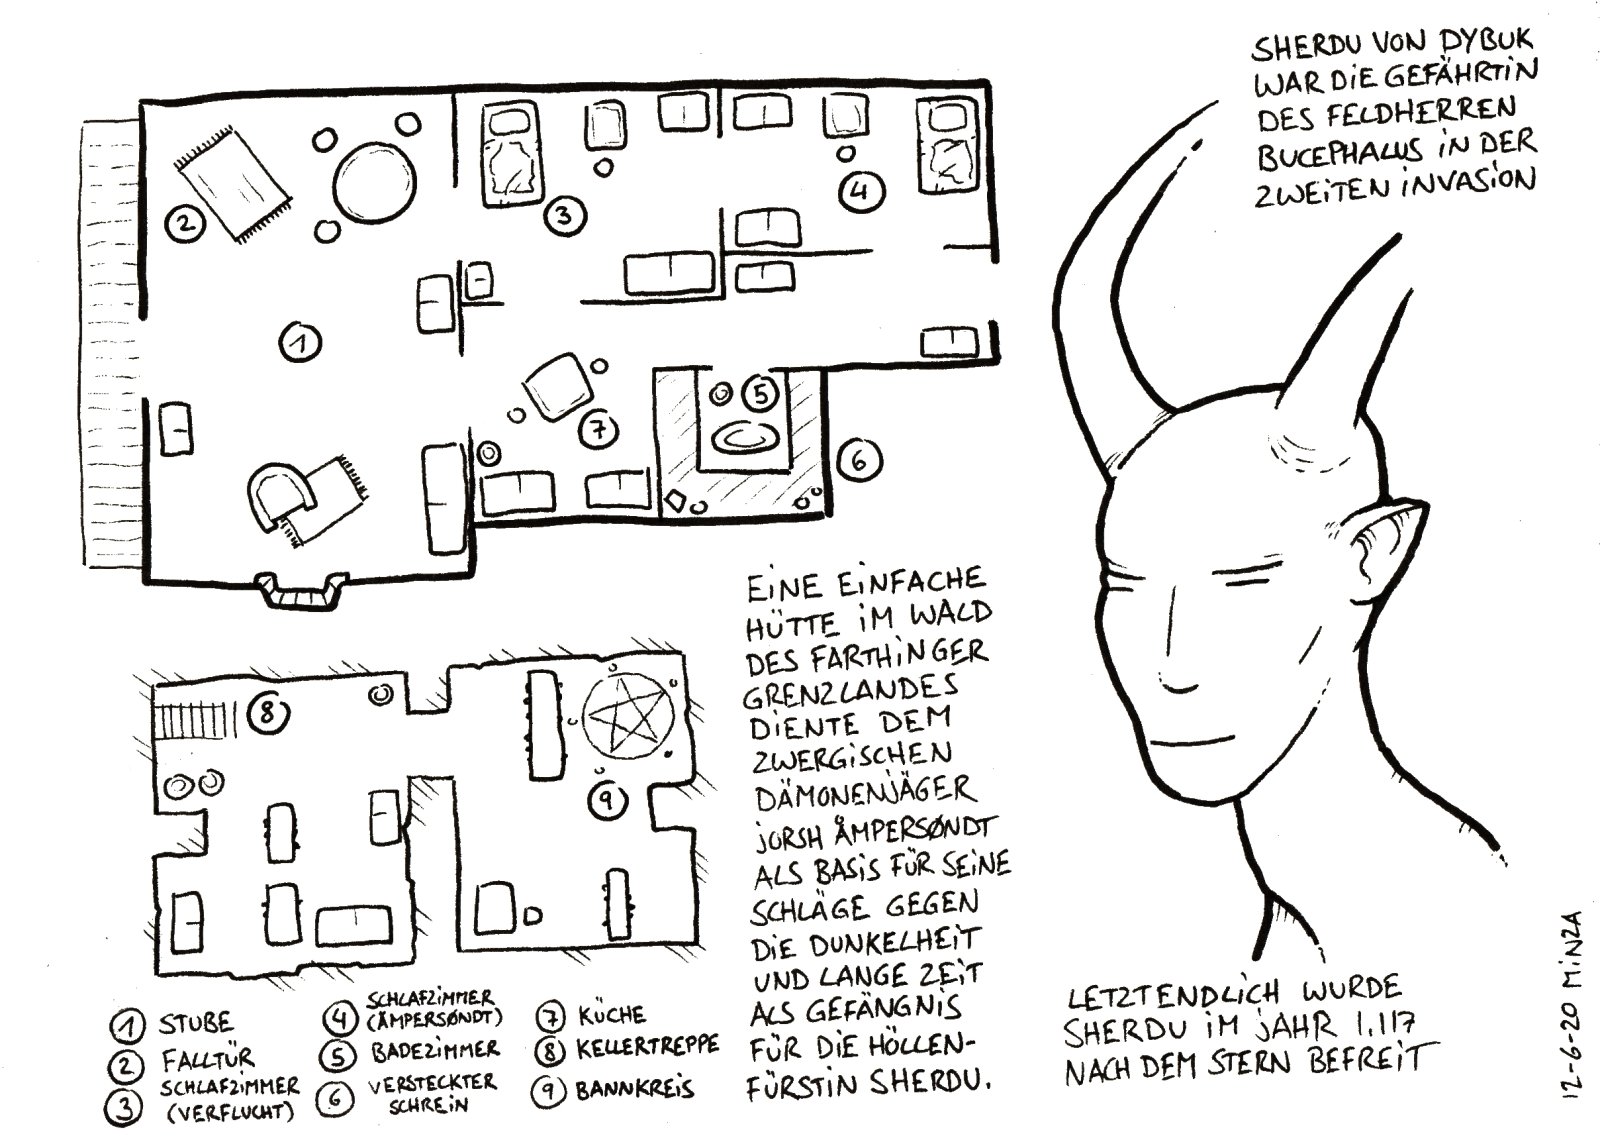 SHERDU VON DYBUK
WAR DIE GEFÄHRTIN
DES FELDHERREN
BUCEPHALUS IN DER
ZWEITEN INVASION
2
3
4
1
5
7
6
EINE EINFACHE
HÜTTE IM WALD
DES FARTHINGER
GRENZLANDES
DIENTE DEM
ZWERGISCHEN
DÄMONENJÄGER
JORSH ÅMPERSØNDT
ALS BASIS FÜR SEINE
SCHLÄGE GEGEN
DIE DUNKELHEIT
UND LANGE ZEIT
ALS GEFÄNGNIS
FÜR DIE HÖLLEN-
FÜRSTIN SHERDU.
8
9
1 STUBE
2 FALLTÜR
3 SCHLAFZIMMER
(VERFLUCHT)
4 SCHLAFZIMMER
(ÅMPERSØNDT)
5 BADEZIMMER
6 VERSTECKTER
SCHREIN
7 KÜCHE
8 KELLERTREPPE
9 BANNKREIS
LETZTENDLICH WURDE
SHERDU IM JAHR 1.117
NACH DEM STERN BEFREIT
12-6-20 MINZA